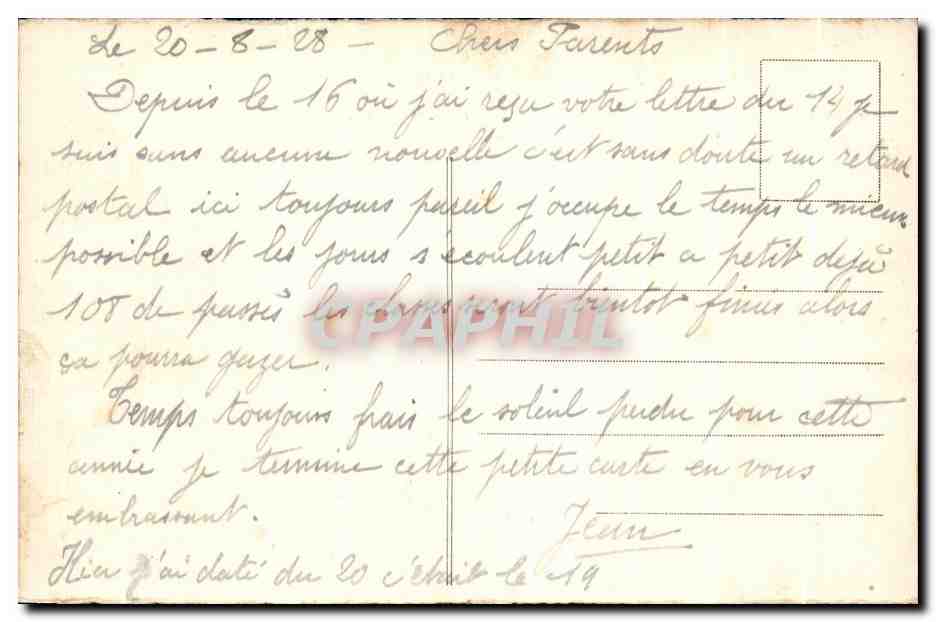 Le 20-8-28 - Chers Parents
Depuis le 16 où j'ai reçu votre lettre du 14 je
suis sans aucune nouvelle c'est sans doute un retard
postal ici toujours pareil j'occupe le temps le mieux
possible et les jours s'écoulent petit a petit dejà
108 de passés les classes seront bientot finies alors
ça pourra gazer.
Temps toujours frais le soleil perdu pour cette
année je termine cette petite carte en vous
embrassant.
Jean
Hier j'ai daté du 20 c'était le 19
CPAPHIL